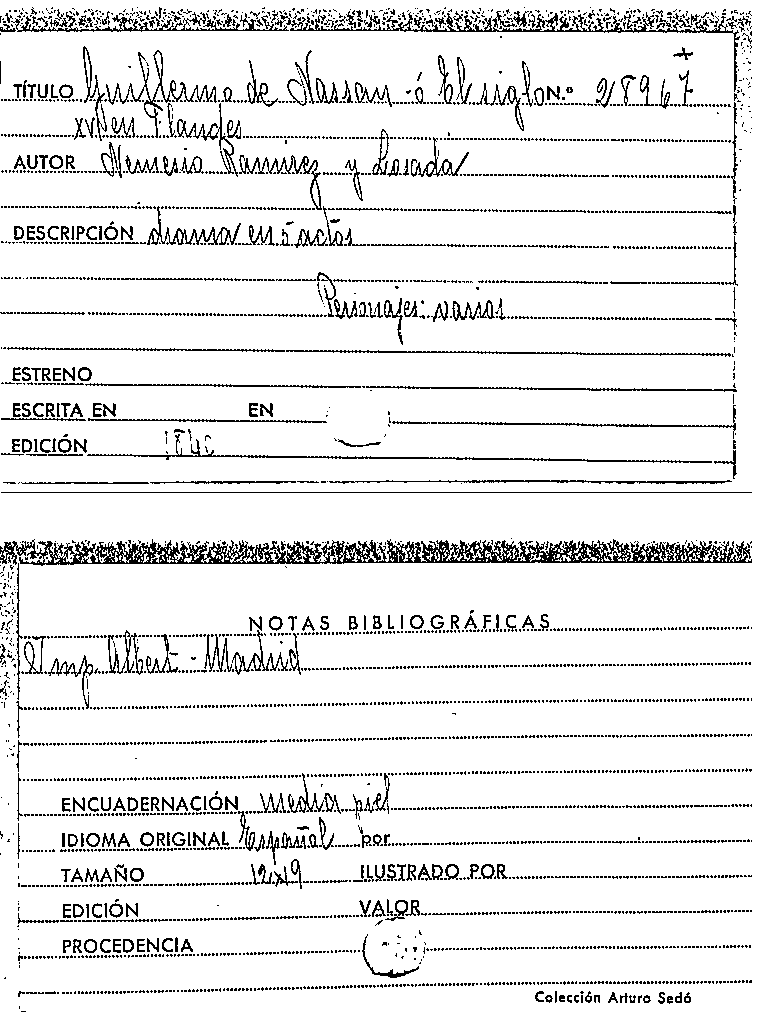 +
TÍTULO Guillermo de Nassau - ó El siglo N.º 28967
XVI en Flandes
AUTOR Nemesio Ramirez y Losada
DESCRIPCIÓN drama en 5 actos
Personajes: varios
ESTRENO
ESCRITA EN EN
EDICIÓN
NOTAS BIBLIOGRÁFICAS
Imp Albert - Madrid
ENCUADERNACIÓN media piel
IDIOMA ORIGINAL Español por
TAMAÑO 12x19 ILUSTRADO POR
EDICIÓN VALOR
PROCEDENCIA
Colección Arturo Sedó